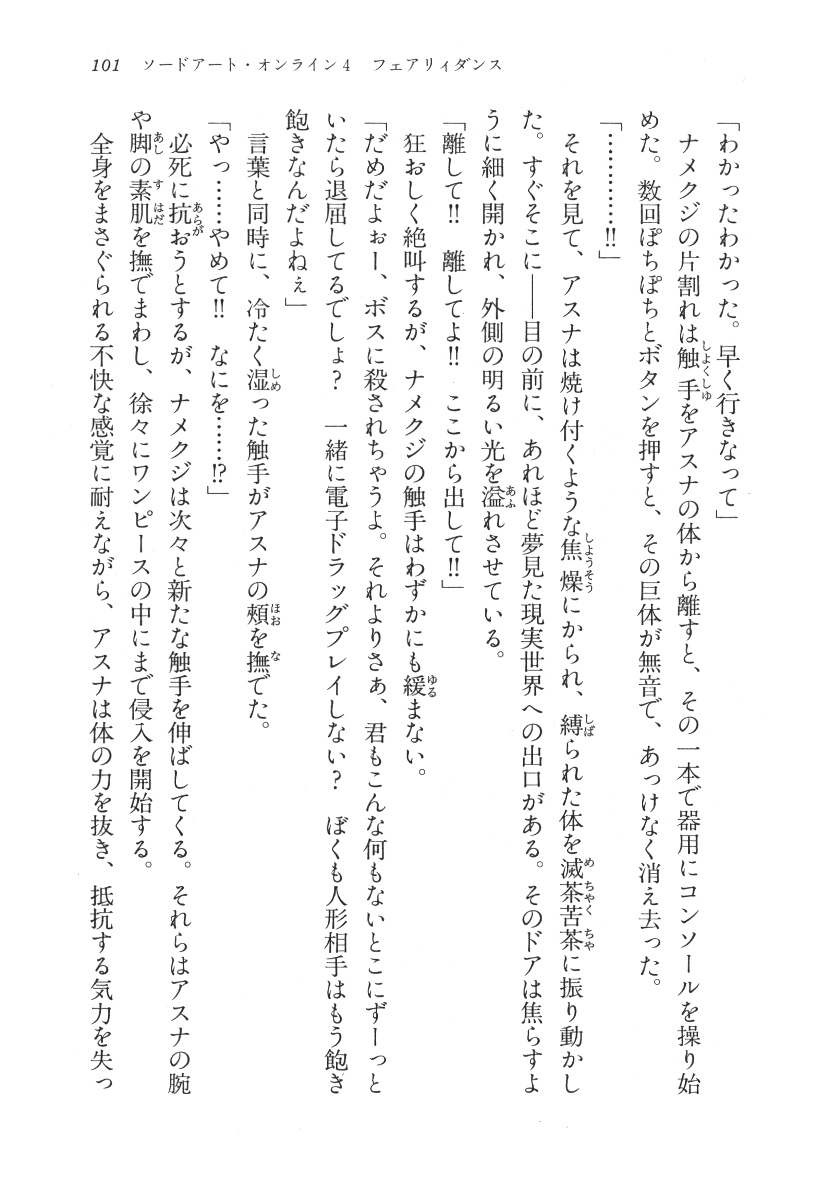 101 ソードアート・オンライン4　フェアリィダンス
「わかったわかった。早く行きなって」
　ナメクジの片割れは触手をアスナの体から離すと、その一本で器用にコンソールを操り始
めた。数回ぽちぽちとボタンを押すと、その巨体が無音で、あっけなく消え去った。
「…………!!」
　それを見て、アスナは焼け付くような焦燥にかられ、縛られた体を滅茶苦茶に振り動かし
た。すぐそこに――目の前に、あれほど夢見た現実世界への出口がある。そのドアは焦らすよ
うに細く開かれ、外側の明るい光を溢れさせている。
「離して!!　離してよ!!　ここから出して!!」
　狂おしく絶叫するが、ナメクジの触手はわずかにも緩まない。
「だめだよぉー、ボスに殺されちゃうよ。それよりさぁ、君もこんな何もないとこにずーっと
いたら退屈してるでしょ？　一緒に電子ドラッグプレイしない？　ぼくも人形相手はもう飽き
飽きなんだよねぇ」
　言葉と同時に、冷たく湿った触手がアスナの頬を撫でた。
「やっ……やめて!!　なにを……!?」
　必死に抗おうとするが、ナメクジは次々と新たな触手を伸ばしてくる。それらはアスナの腕
や脚の素肌を撫でまわし、徐々にワンピースの中にまで侵入を開始する。
　全身をまさぐられる不快な感覚に耐えながら、アスナは体の力を抜き、抵抗する気力を失っ